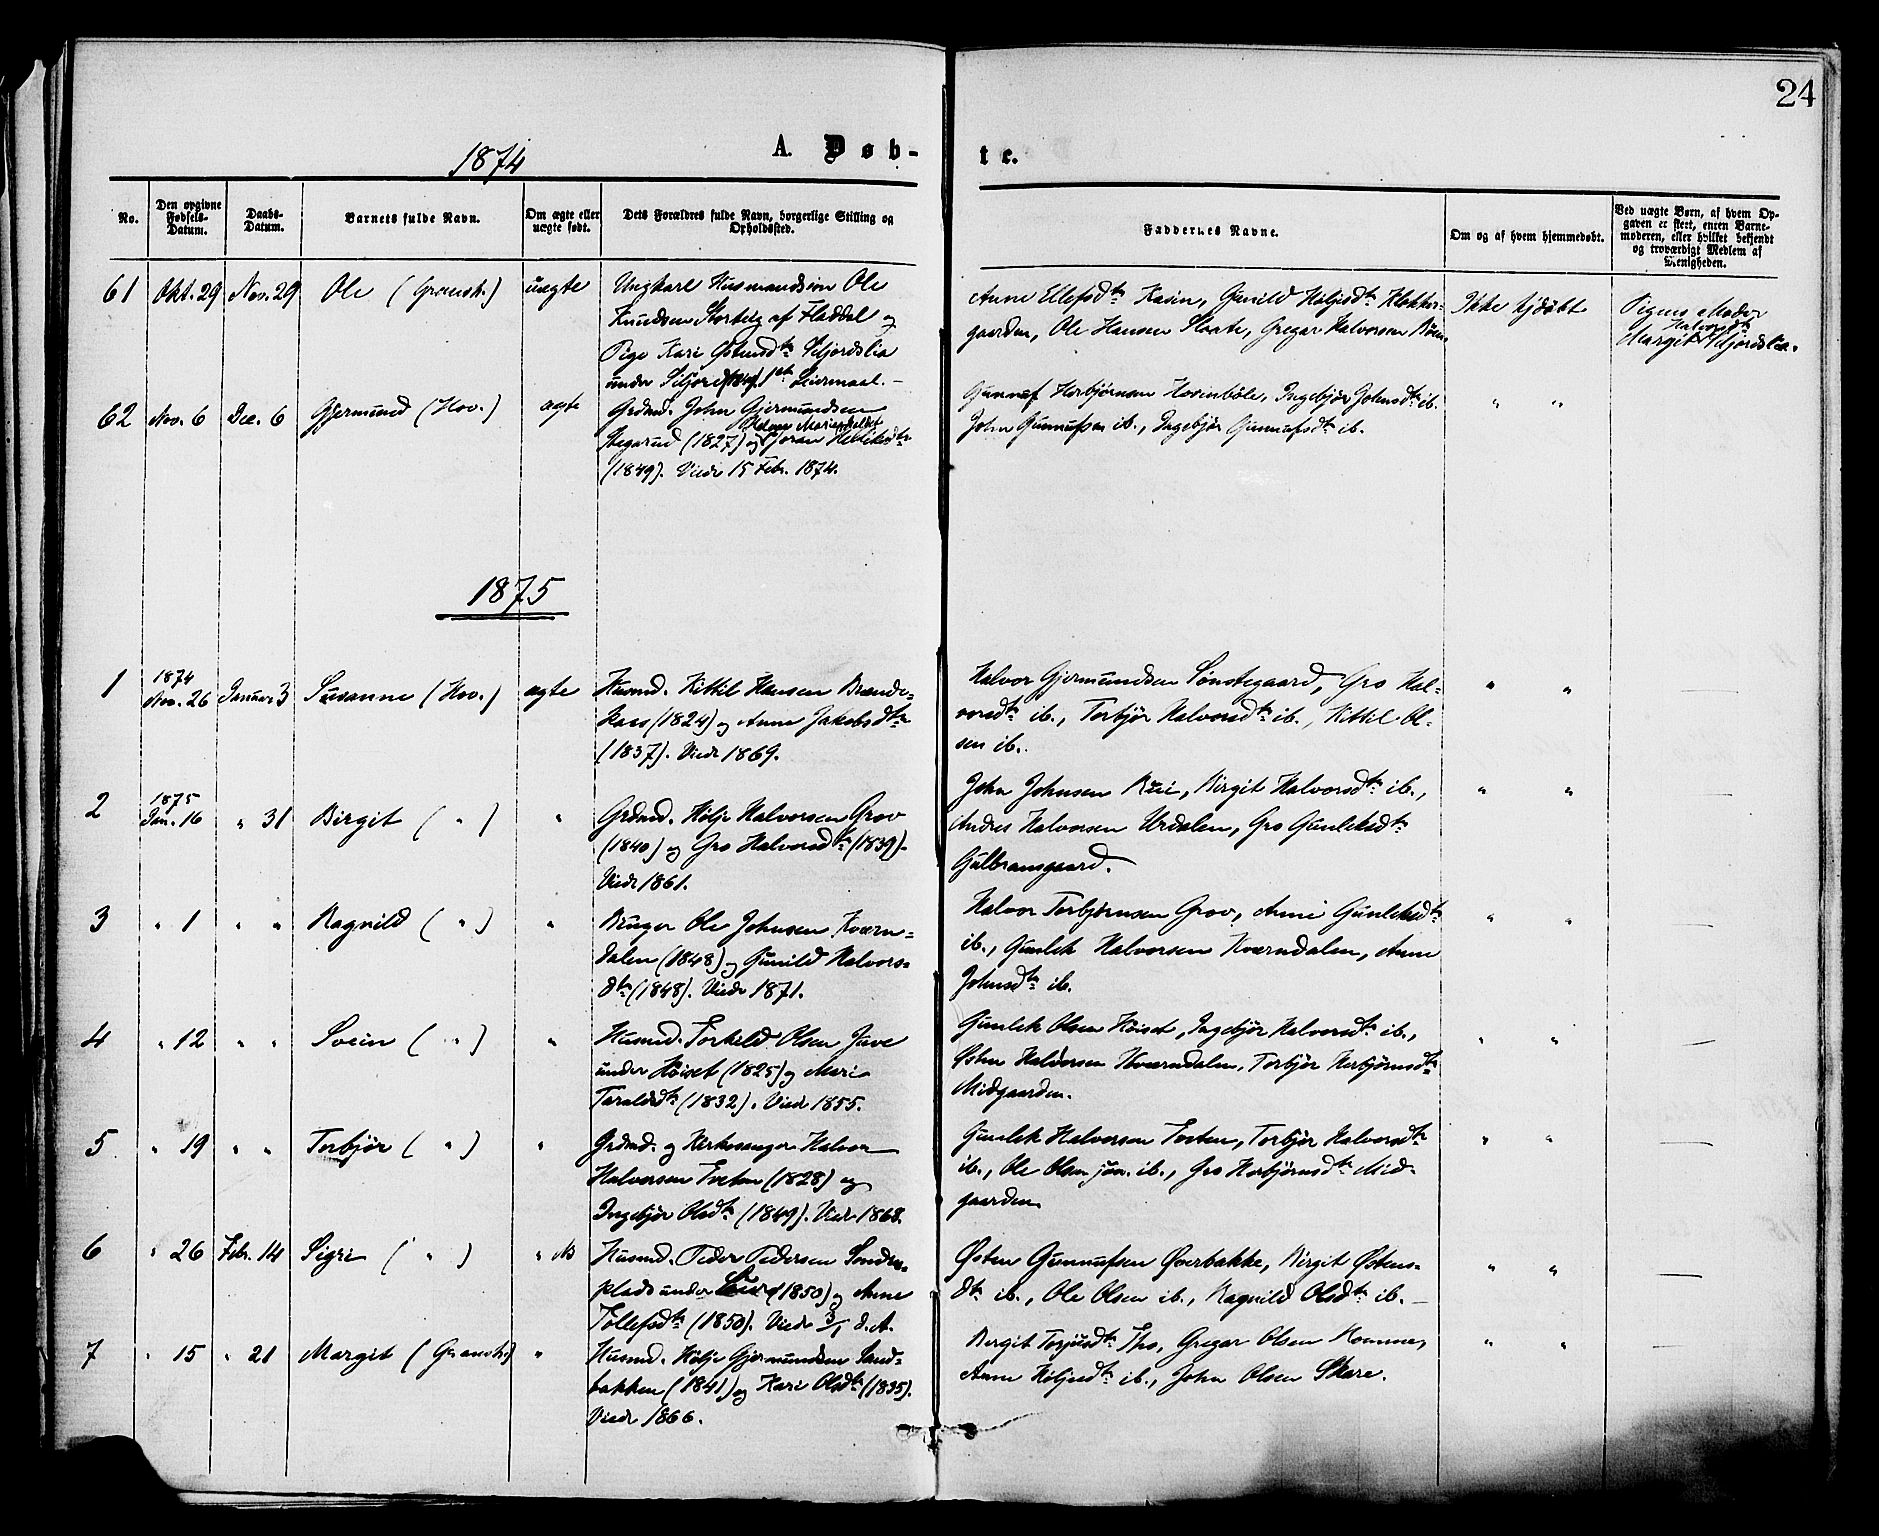 24
1874
A. Døb-
te.
No.
Den opgivne Fødsels-Datum.
Daabs-Datum.
Barnets fulde Navn.
Om ægte eller uægte født.
Dets Forældres fulde Navn, borgerlige Stilling og Opholdssted.
Faddernes Navne.
Om og af hvem hjemmedøbt.
Ved uægte Børn, af hvem Op-
gaven er skeet, enten Barne-
moderen, eller hvilket bekjendt
og troværdigt Medlem af
Menigheden.
61 Okt. 29 Nov. 29 Ole (Gransh.) uægte
Ungkarl Husmandssøn Ole
Knudsen Storteig af Fladdal og
Pige Kari Østensdtr Seljordslia
under Seljord 1st Leiermaal. –
Anne Ellefsdtr Kasin, Gunild Høljesdtr Klokker-
gaarden, Ole Hansen Slaate, Gregar Halvorsen Bøen.
Ikke hjdøbt
Pigens Moder
Halvorsdtr
Margit Seljordslia.
62 Nov. 6 Dec. 6 Gjermund (Hov.) ægte
Grdmd. John Gjermundsen
(1827) og Joran Kittilsdtr
(1849). Viede 15 Febr. 1874.
Gunnuf Herbjørnsen Hovinbøle, Ingebjør Johnsdtr ib.
John Gunnufsen ib., Ingebjør Gunnufsdtr ib.
" "
1875
1 1874 Nov. 26 Januar 3 Susanne (Hov.) ægte
Husmd. Kittil Hansen Brænde-
kaas (1824) og Anne Jakobsdtr
(1837). Viede 1869.
Halvor Gjermundsen Sønstegaard, Gro Hal-
vorsdtr ib., Torbjør Halvorsdtr ib., Kittil Ol-
sen ib.
" " —
2 1875 Jan. 16 " 31 Birgit ( " ) "
Grdmd. Hølje Halvorsen Grov
(1840) og Gro Halvorsdtr (1839).
Viede 1861.
John Johnsen Rui, Birgit Halvorsdtr ib.,
Andres Halvorsen Urdalen, Gro Gunleksdtr
Gulbransgaard.
" " —
3 " 1 " " Ragnild ( " ) "
Bruger Ole Johnsen Kværn-
dalen (1848) og Gunild Halvors-
dtr (1848). Viede 1871.
Halvor Torbjørnsen Grov, Anne Gunleksdtr
ib., Gunlek Halvorsen Kværndalen, Anne
Johnsdtr ib.
" " —
4 " 12 " " Svein ( " ) "
Husmd. Torkild Olsen Juve
under Høiset (1825) og Mari
Taraldsdtr (1832). Viede 1855.
Gunlek Olsen Høiset, Ingebjør Halvorsdtr ib.,
Østen Halvorsen Kværndalen, Torbjør Herbjørnsdtr
Midgaarden.
" " —
5 " 19 " " Torbjør ( " ) "
Grdmd. og Kirkesanger Halvor
Halvorsen Tveten (1828) og
Ingebjør Olsdtr (1849). Viede 1868.
Gunlek Halvorsen Tveten, Torbjør Halvorsdtr
ib., Ole Olsen jun. ib., Gro Herbjørnsdtr Mid-
gaarden
" " —
6 " 26 Febr. 14 Sigri ( " ) "
Husmd. Peder Pedersen Sønder-
plads under (1850) og Anne
Tollefsdtr (1850). Viede 3/1 d. A.
Østen Gunnufsen Øverbakke, Birgit Østens-
dtr ib., Ole Olsen ib., Ragnild Olsdtr ib. –
" " —
7 " 15 " 21 Margit (Gransh.) "
Husmd. Hølje Gjermundsen Sand-
bakken (1841) og Kari Olsdtr (1835).
Viede 1866.
Bergit Torjusdtr Tho, Gregar Olsen Komme,
Anne Høljesdtr ib., John Olsen Skare.
" " —